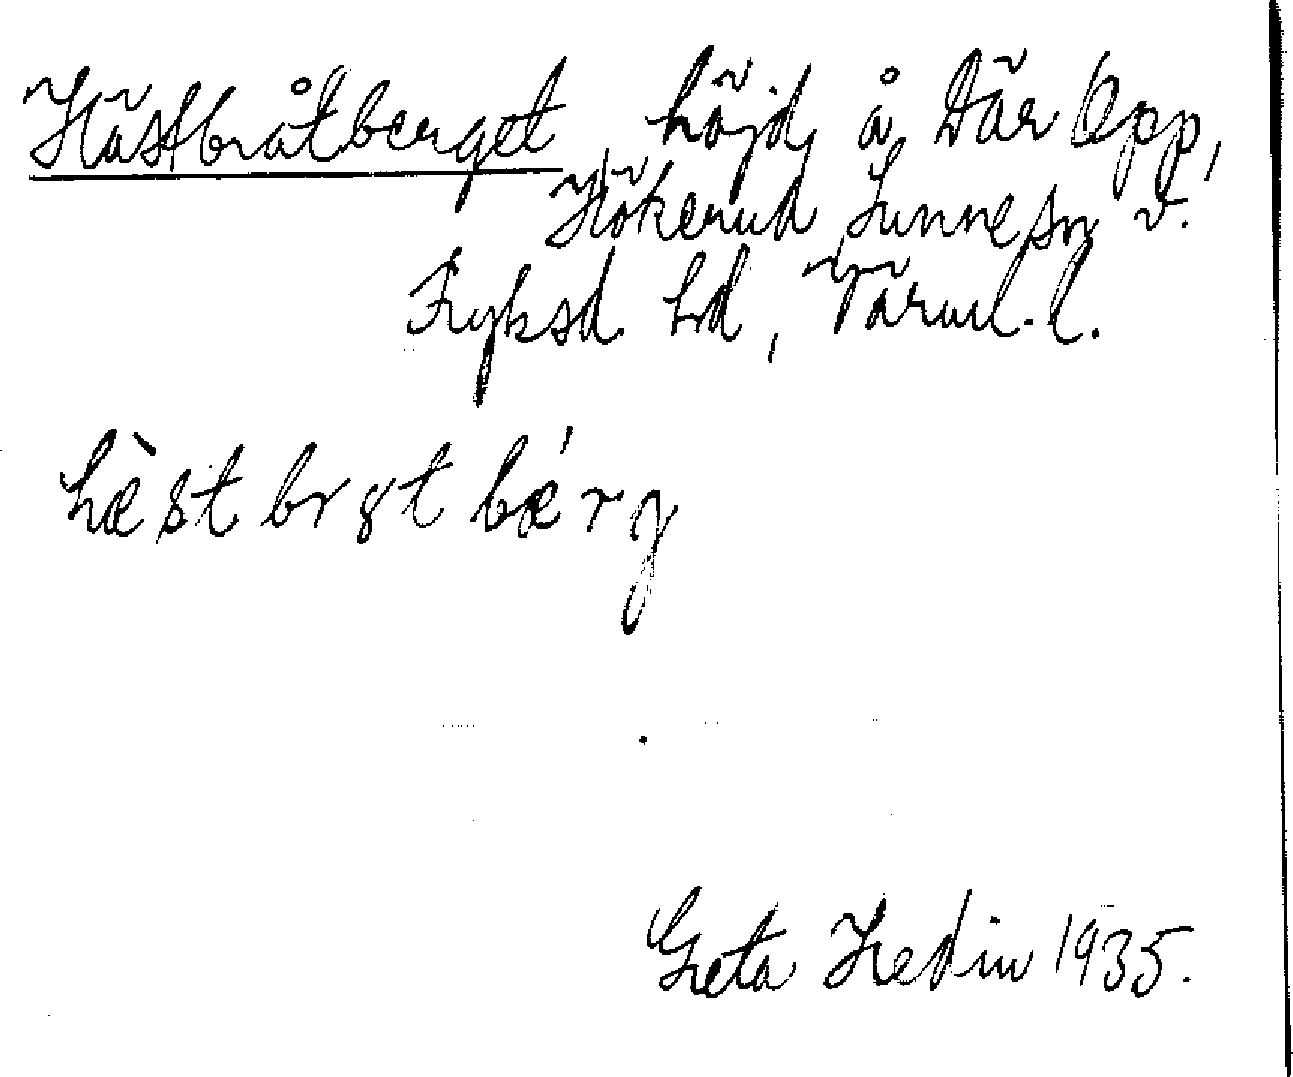 Hästbråtberget, höjd, å Där Opp,
Hökerud, Sunne sn, V.
Fryksd. hd, Värml. l.
hæ̀st brȣt bǽrg
Greta Hedin 1935.